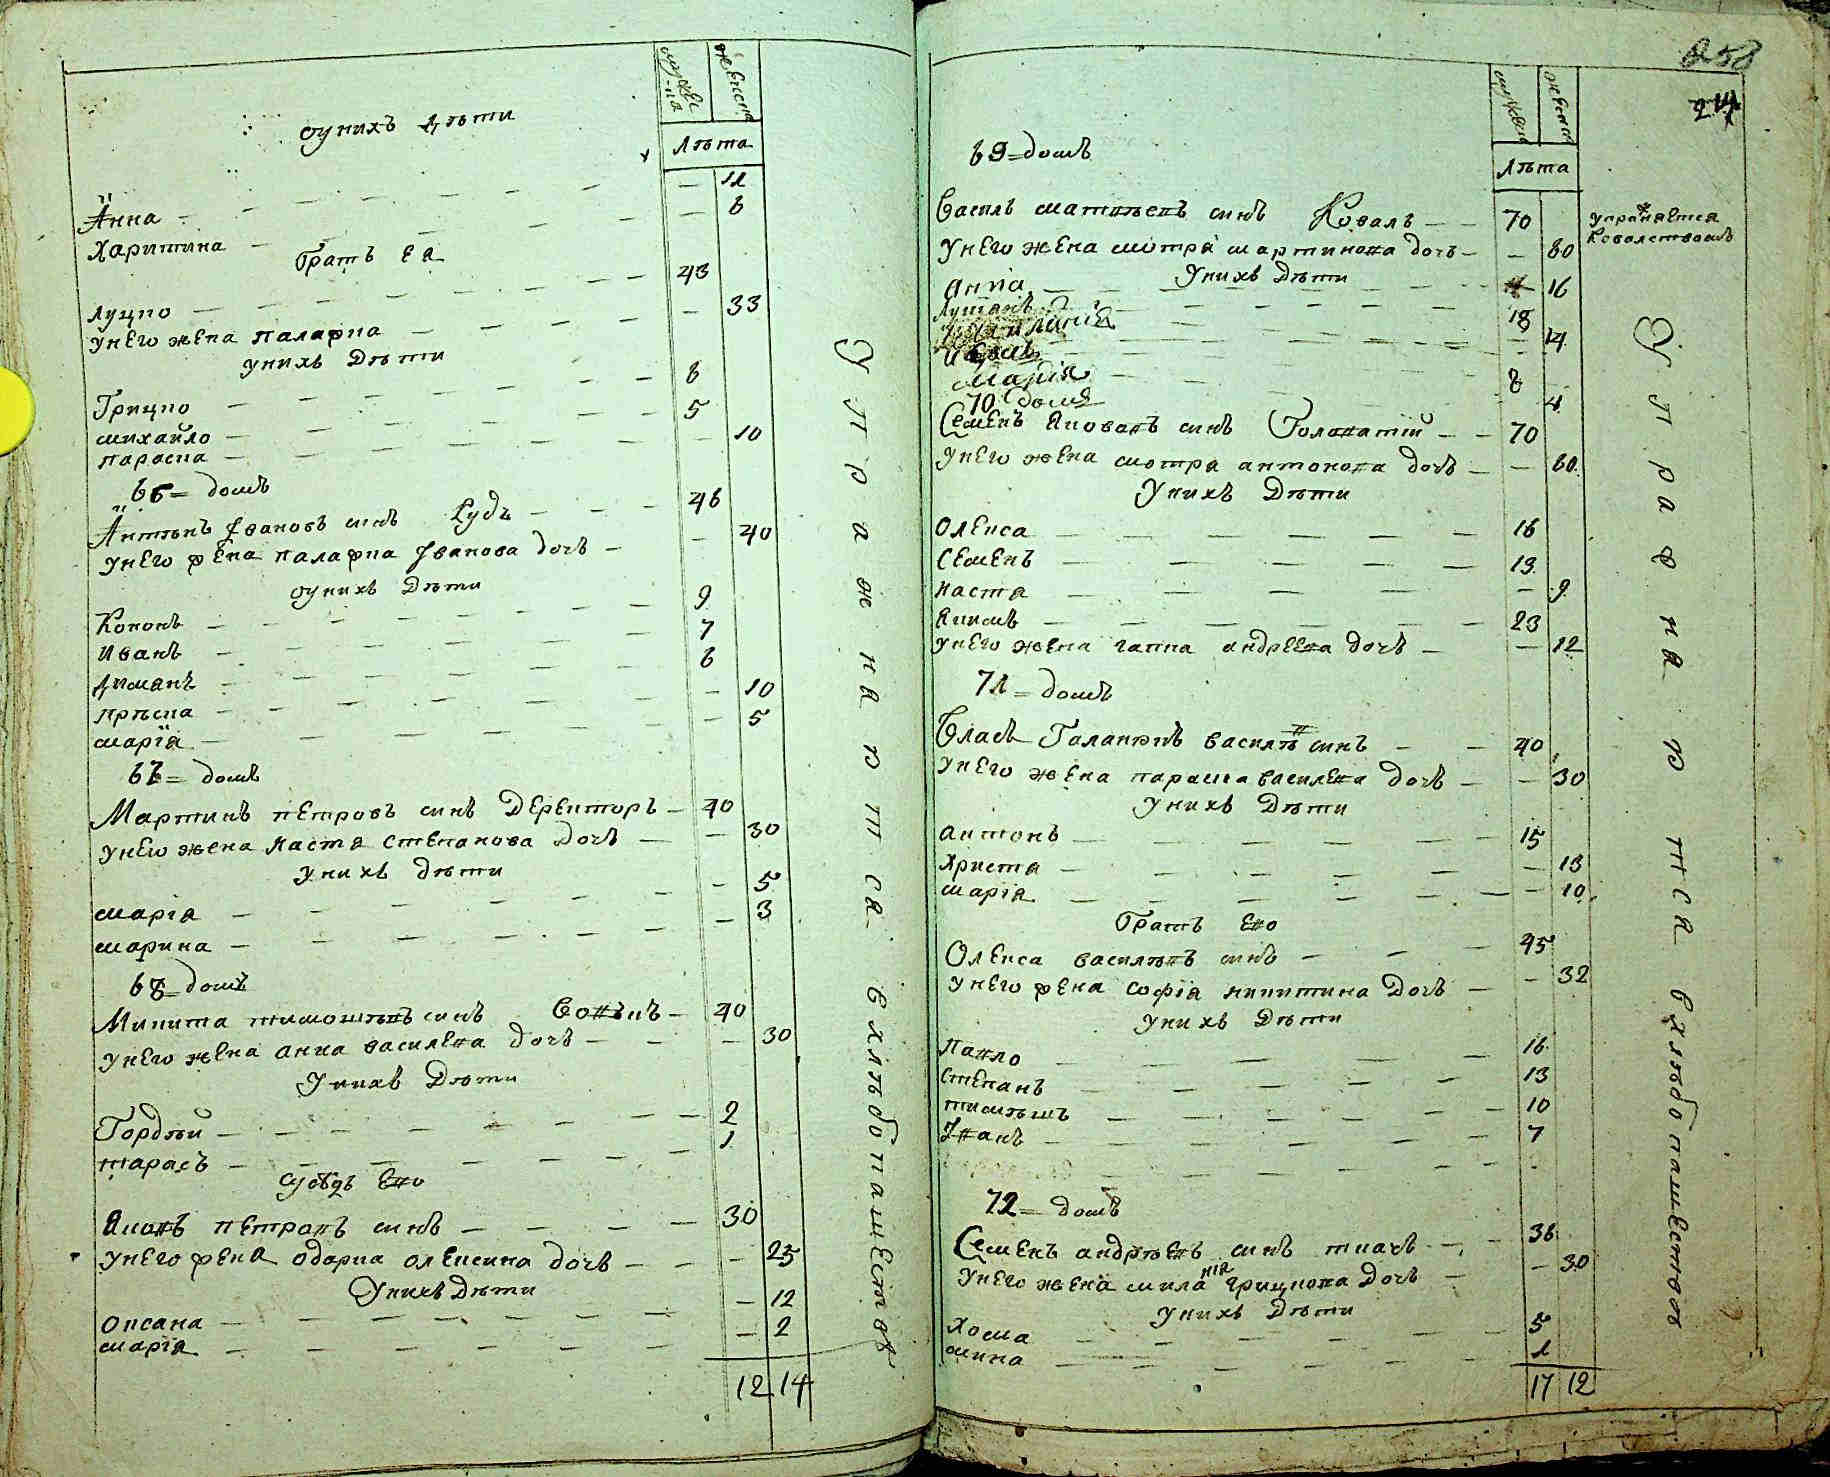 мужес
ка
женска
Лѣта
оунихъ дѣти
Анна — — — — — — — 11
Харитина — — — — — — 6
братъ ея
Луцко — — — — — — 43
унего жена палажка — — — — 33
унихъ Дѣти
Грицко — — — — — — 6
михайло — — — — — — 5
параска — — — — — — 10
66 = домъ
Антонъ Јвановъ синъ Рудъ — — — 46
унего жена палажка Јванова дочъ — — 40
оунихъ Дѣти
Кононъ — — — — — — 9
Иванъ — — — — — — 7
Лукианъ — — — — — — 6
пріска — — — — — — 10
марія — — — — — — 5
67 = домъ
Мартинъ петровъ синъ Деректоръ — 40
унего жена Настя степанова дочъ — — 30
унихъ дѣти
марія — — — — — — 5
марина — — — — — — 3
68 = домъ
Микита тимошовъ синъ Вовкъ — 40
унего жена анна василева дочъ — — 30
Унихъ Дѣти
Гордѣй — — — — — — 2
тарасъ — — — — — — 1
сусѣдъ Его
Яковъ петровъ синъ — — — — 30
унего жена одарка олексина дочъ — — — 25
Унихъ Дѣти
Оксана — — — — — — 12
марія — — — — — — 2
12 14
Упражняется хлѣбопашествомъ
258
24
мужеск
женска
Лѣта
69 = домъ
Василь матвѣевъ синъ Коваль — — 70
упражняется
Ковалствомъ
унего жена мотря мартинова дочъ — — 60
Унихъ Дѣти
анна — — — — — — 16
Лукянъ — — — — — — 18
14
— — — — — — 8
марія — — — — — — 4
70 домъ
Семенъ Яковавъ синъ Головатій — — 70
Унего жена мотря антонова дочъ — — 60
Унихъ Дѣти
Олекса — — — — — — 16
Семенъ — — — — — — 13
настя — — — — — — 9
Якимъ — — — — — — 23
унего жена ганна андреева дочъ — — 12
71 = домъ
Власъ Галаганъ василѣв синъ — — 40
Унего жена параска василева дочъ — — 30
Унихъ Дѣти
антонъ — — — — — — 15
Христя — — — — — — 13
марія — — — — — — 10
братъ Его
Олекса василѣвъ синъ — — — 45
унего жена софія микитина Дочъ — — 32
Унихъ Дѣти
павло — — — — — — 16
степанъ — — — — — — 13
тимѣшъ — — — — — — 10
Јванъ — — — — — — 7
72 = домъ
Семенъ андрѣевъ синъ ткачъ — — 36
унего жена мила нія грицкова дочъ — — 30
унихъ Дѣти
Хома — — — — — — 5
мина — — — — — — 1
17 12
Упражняется хлѣбопашествомъ